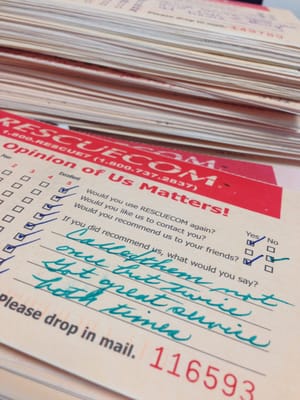 Please drop in m
149789
RESCUECOM
1.800.RESCUE7 (1.800.737.2837)
Opinion of Us Matters!
Poor Excellent
2 3 4 5
Yes No
Would you use RESCUECOM again?
Would you like us to contact you?
Would you recommend us to your friends?
If you did recommend us, what would you say?
Called them not
once but twice
Got great service
both times
Please drop in mail.
116593